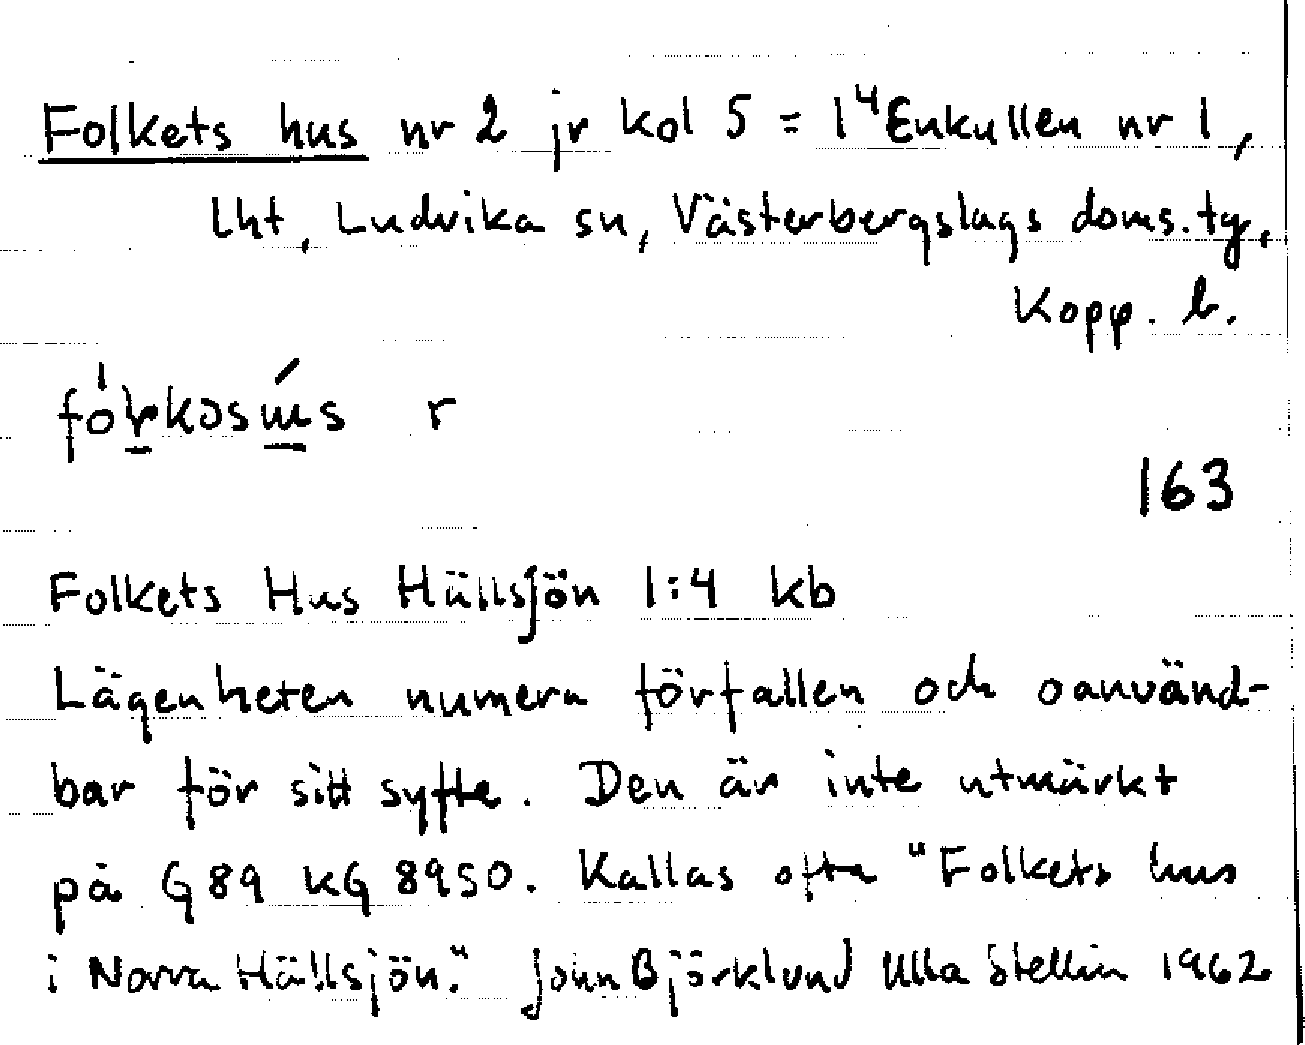 Folkets hus nr 2 jr kol 5 = 1⁴ Enkullen nr 1,
Lht, Ludvika sn, Västerbergslags doms. tg,
Kopp. l.
r
163
Folkets Hus Hällsjön 1:4 kb
Lägenheten numera förfallen och oanvänd-
bar för sitt syfte. Den är inte utmärkt
på G89 kG 8950. Kallas ofta "Folkets hus
i Norra Hällsjön." John Björklund Ulla Stellin 1962